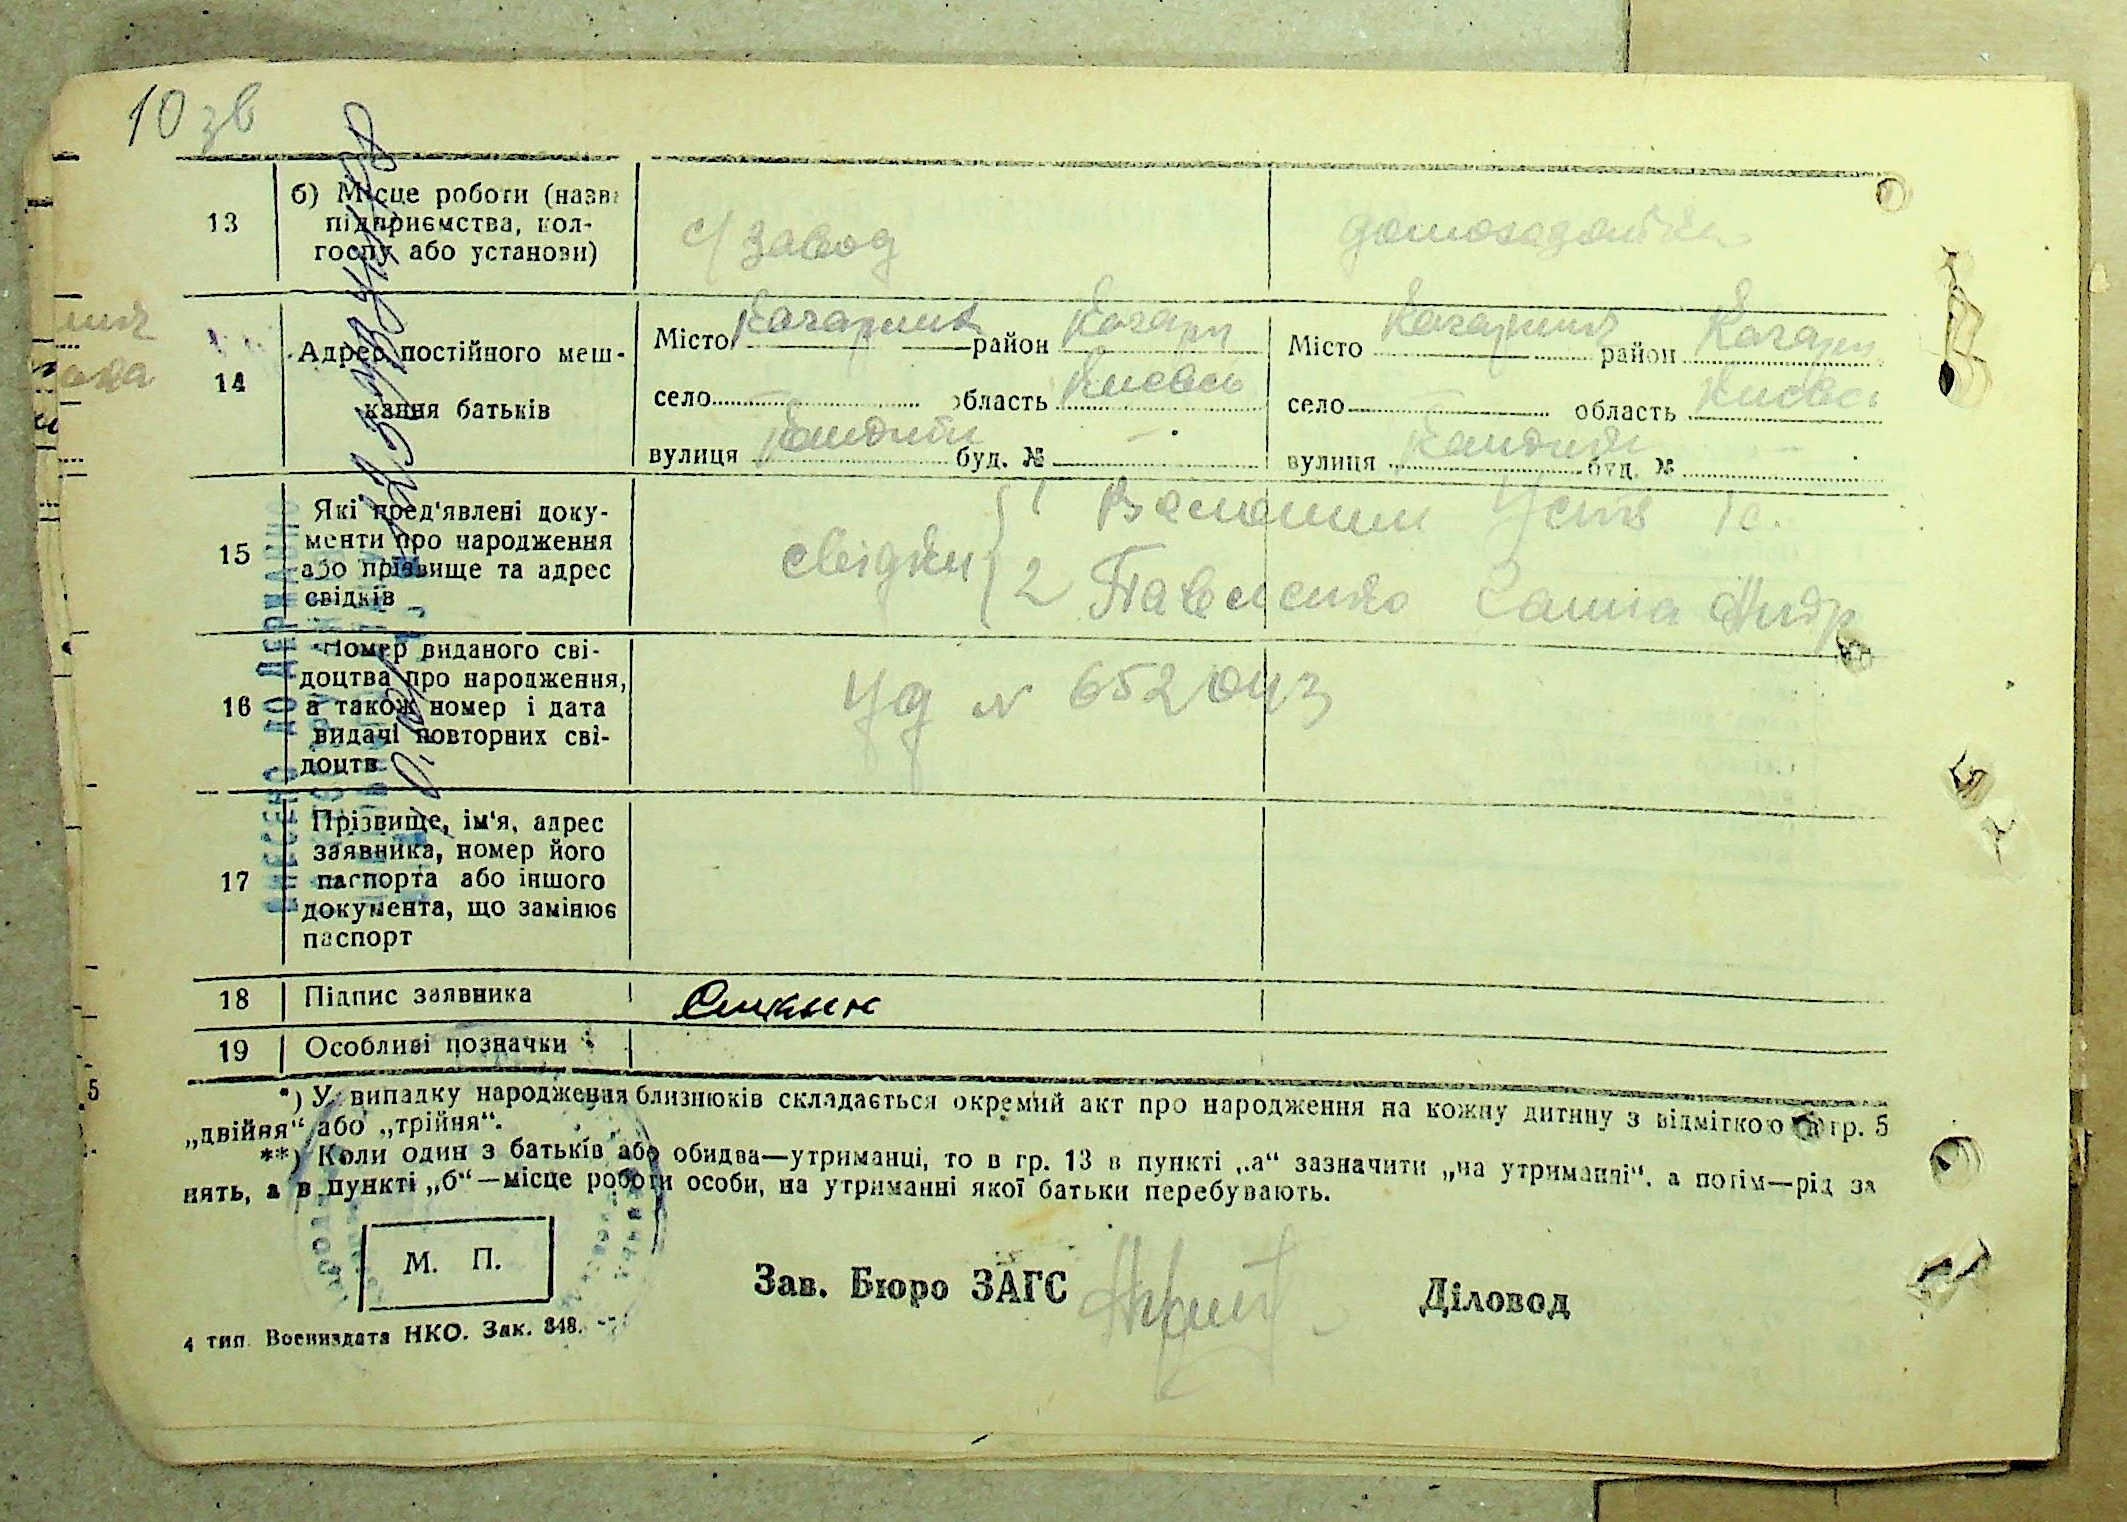 10 зв
13
б) Місце роботи (назва
підприємства, кол-
госпу або установи)
с/завод
домогосподарка
14
Адрес постійного меш-
кання батьків
Місто Кагарлик район Кагарл
село область Київськ
вулиця буд. № —
Місто Кагарлик район Кагарл
село область Київськ
вулиця буд. №
15
Які пред'явлені доку-
менти про народження
або прізвище та адрес
свідків
свідки
1
2 Павленко Ганна Андр
16
Номер виданого сві-
доцтва про народження,
а також номер і дата
видачі повторних сві-
доцтв
УД № 652043
17
Прізвище, ім'я, адрес
заявника, номер його
паспорта або іншого
документа, що замінює
паспорт
18
Підпис заявника
19
Особливі позначки
*) У випадку народження близнюків складається окремий акт про народження на кожну дитину з відміткою в гр. 5
„двійня“ або „трійня“.
**) Коли один з батьків або обидва—утриманці, то в гр. 13 в пункті „а“ зазначити „на утриманні“, а потім—рід за
нять, а в пункті „б“—місце роботи особи, на утриманні якої батьки перебувають.
М. П.
Зав. Бюро ЗАГС
Діловод
4 тип. Воениздата НКО. Зак. 848.
5